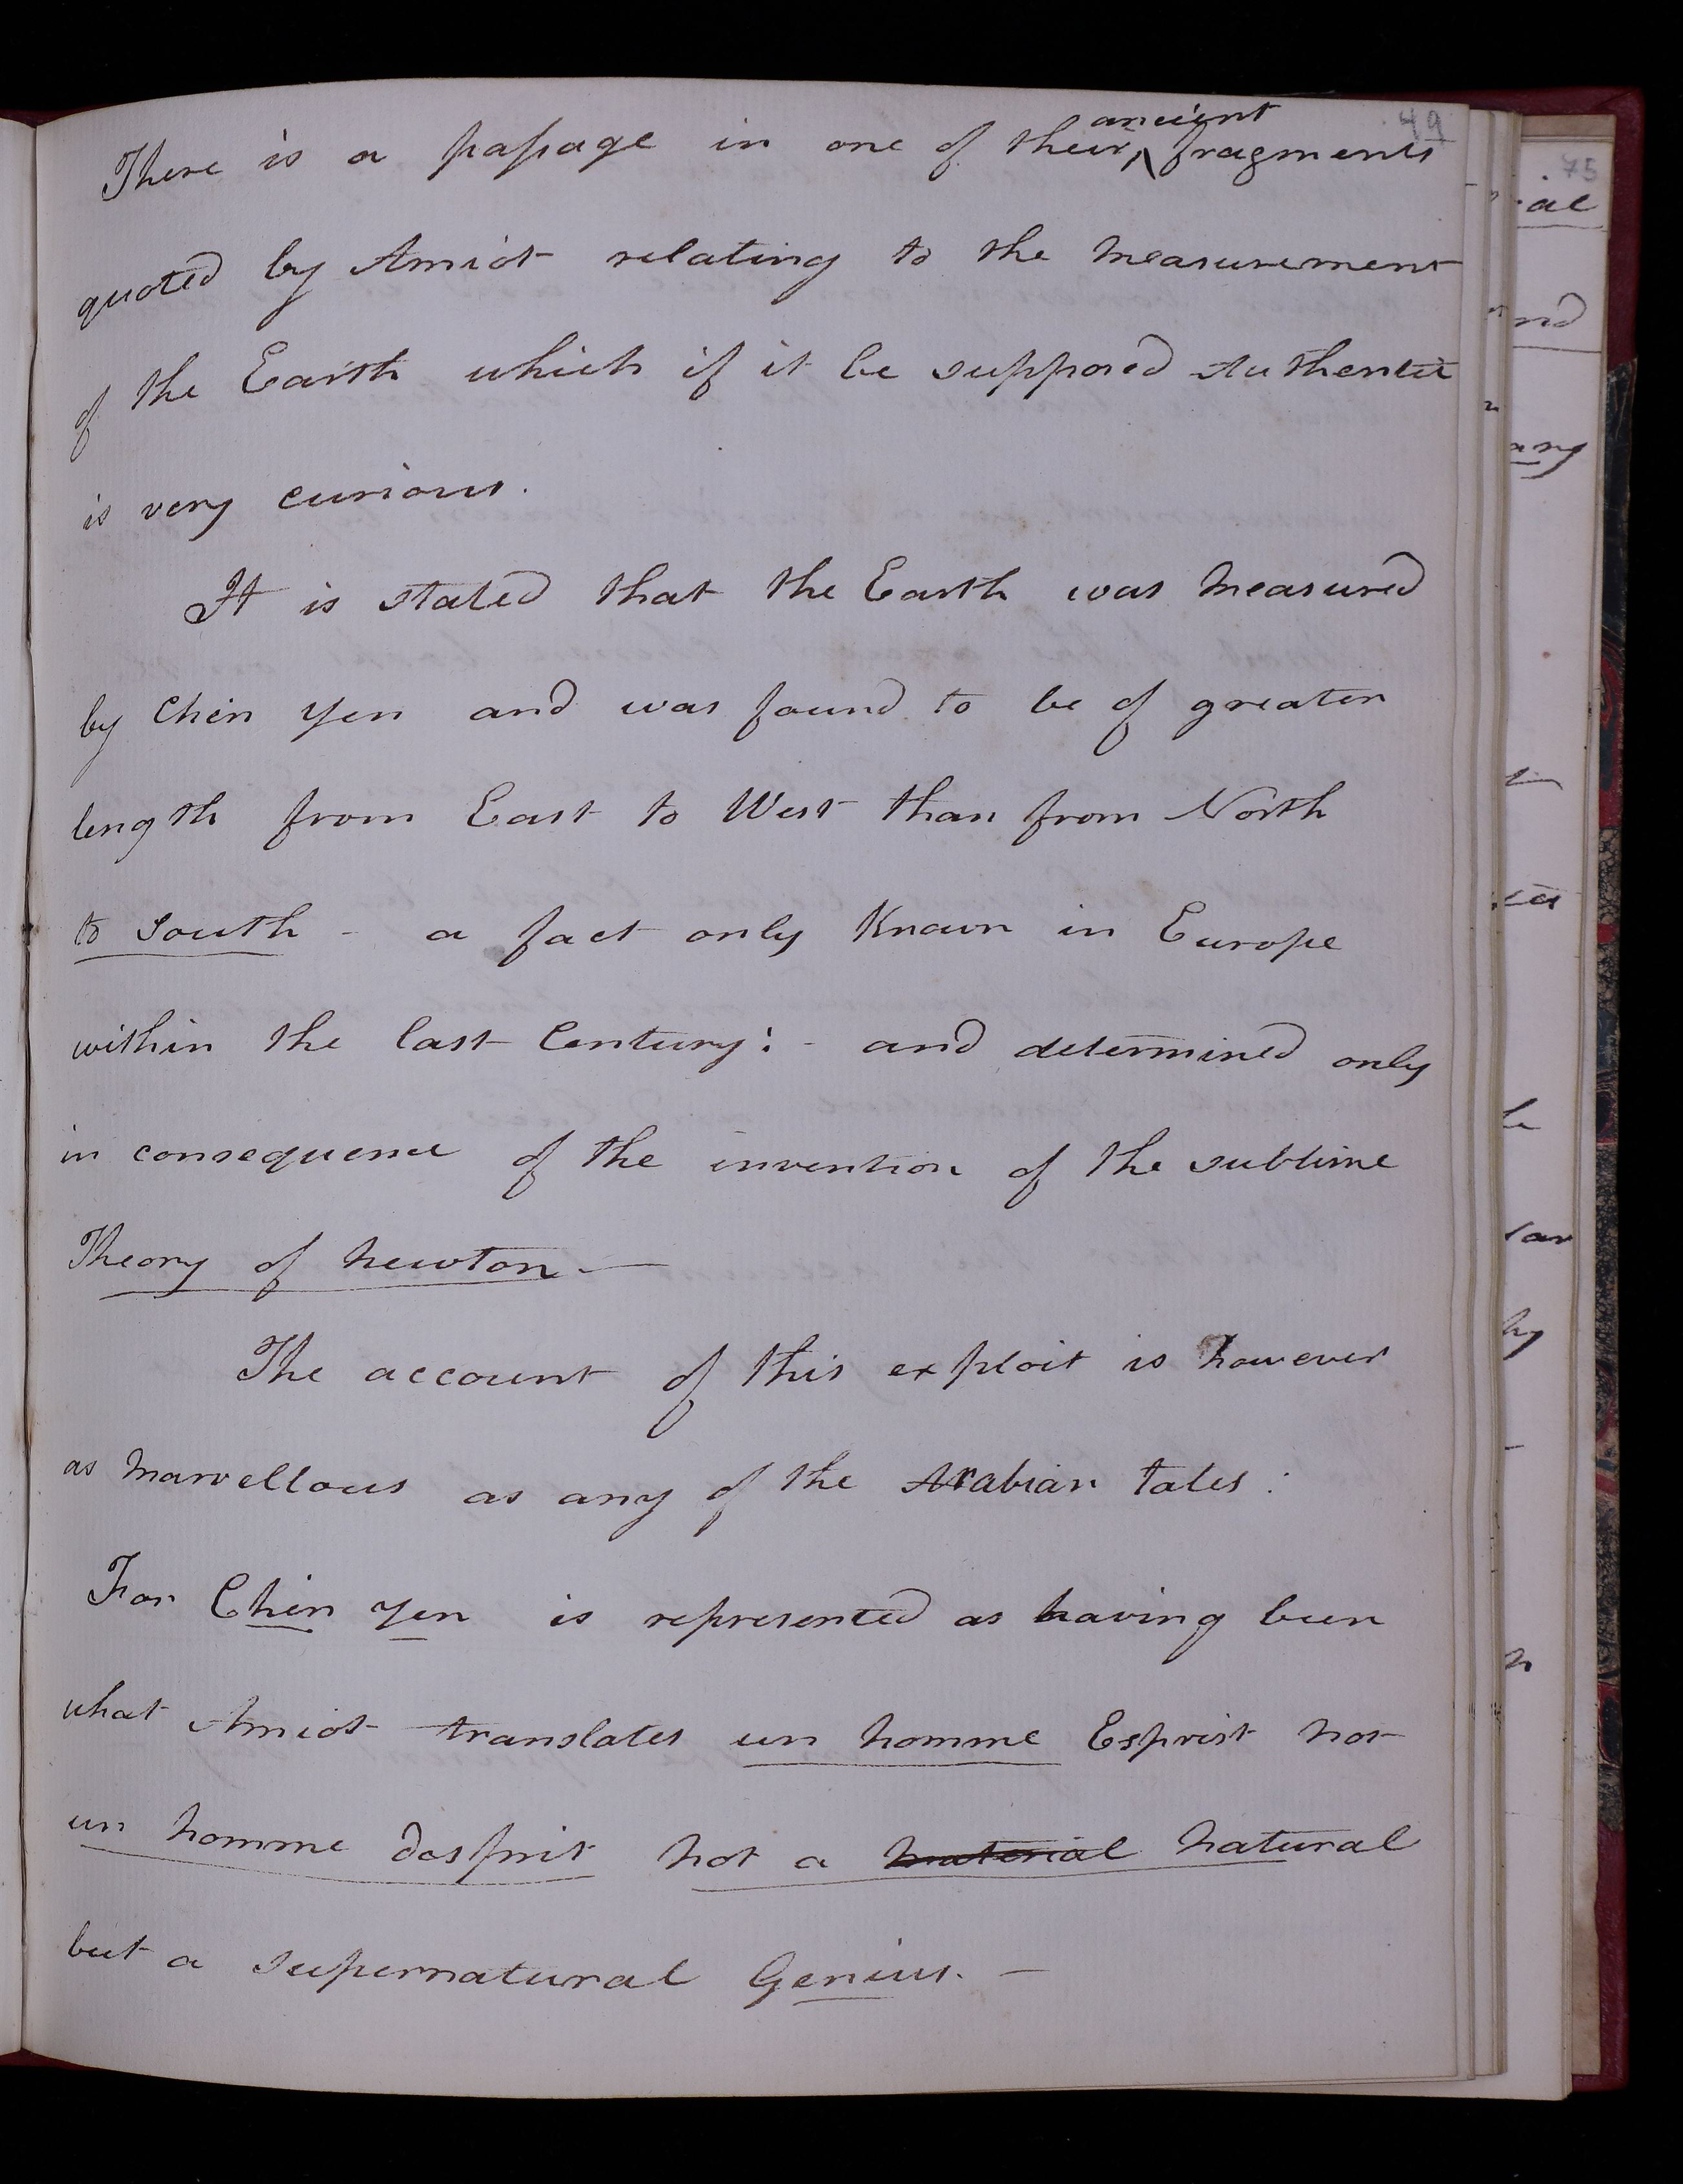 49
ancient
There is a passage in one of their fragments
quoted by Amiot relating to the measurement
of the Earth which if it be supposed Authentic
is very curious.
It is stated that the Earth was measured
by Chen Yen and was found to be of greater
length from East to West than from North
to South - a fact only Known in Europe
within the last Century: - and determined only
in consequence of the invention of the sublime
Theory of Newton. —
The account of this exploit is however
as marvellous as any of the Arabian tales:
For Chen Yen is represented as having been
what Amiot translates un homme Esprit not
un homme desprit not a material natural
but a supernatural Genius. —
75
ial
nd
ang
le
lar
by